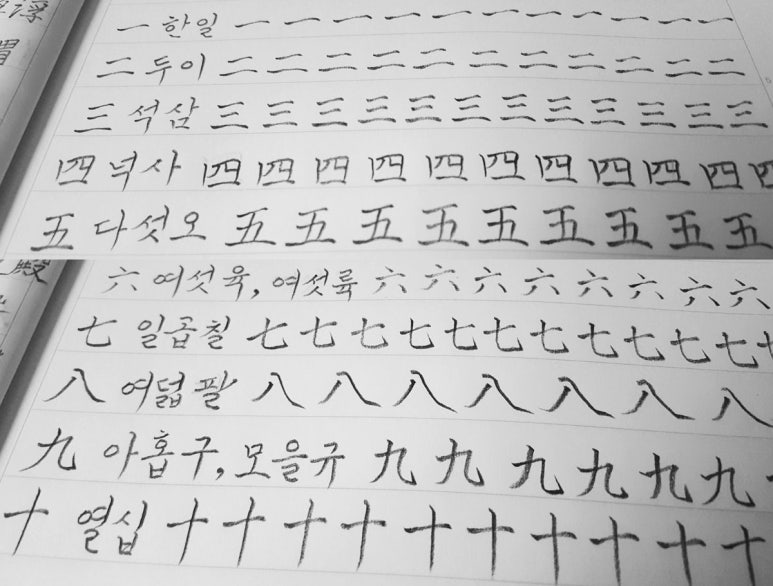 一 한일 一 一 一 一 一 一 一 一 一 一 一
二 두이 二 二 二 二 二 二 二 二 二 二 二
三 석삼 三 三 三 三 三 三 三 三 三 三 三 三
四 넉사 四 四 四 四 四 四 四 四 四 四 四
五 다섯오 五 五 五 五 五 五 五 五 五
六 여섯육, 여섯륙 六 六 六 六 六 六 六 六
七 일곱칠 七 七 七 七 七 七 七 七 七 七 七
八 여덟팔 八 八 八 八 八 八 八
九 아홉구, 모을규 九 九 九 九 九 九
十 열십 十 十 十 十 十 十 十 十 十 十